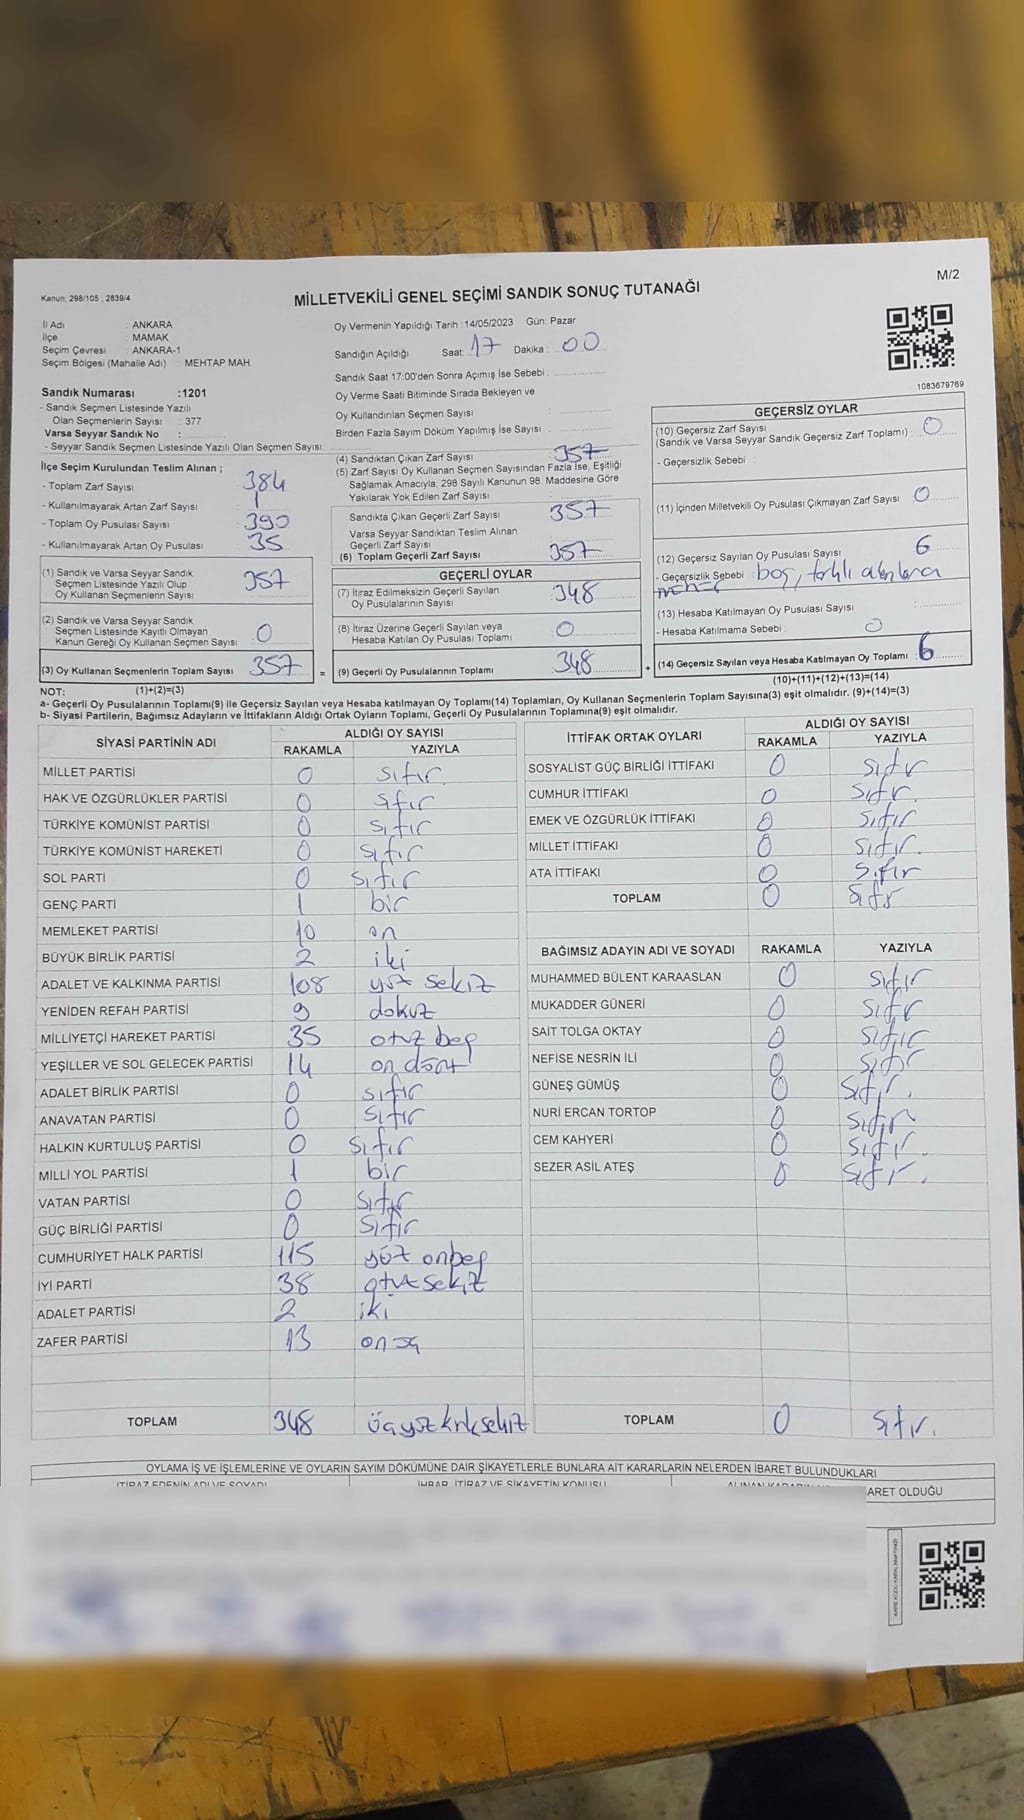 M/2
Kanun: 298/105 , 2839/4
MİLLETVEKİLİ GENEL SEÇİMİ SANDIK SONUÇ TUTANAĞI
İl Adı : ANKARA
İlçe : MAMAK
Seçim Çevresi : ANKARA-1
Seçim Bölgesi (Mahalle Adı) : MEHTAP MAH.
Oy Vermenin Yapıldığı Tarih :14/05/2023 Gün: Pazar
Sandığın Açıldığı Saat: 17 Dakika: 00
Sandık Saat 17:00'den Sonra Açımış İse Sebebi :
Oy Verme Saati Bitiminde Sırada Bekleyen ve
Oy Kullandırılan Seçmen Sayısı :
Birden Fazla Sayım Döküm Yapılmış İse Sayısı :
1083679769
Sandık Numarası :1201
- Sandık Seçmen Listesinde Yazılı
Olan Seçmenlerin Sayısı : 377
Varsa Seyyar Sandık No :
- Seyyar Sandık Seçmen Listesinde Yazılı Olan Seçmen Sayısı:
İlçe Seçim Kurulundan Teslim Alınan ;
- Toplam Zarf Sayısı : 384
- Kullanılmayarak Artan Zarf Sayısı : 1
- Toplam Oy Pusulası Sayısı : 390
- Kullanılmayarak Artan Oy Pusulası : 35
(1) Sandık ve Varsa Seyyar Sandık
Seçmen Listesinde Yazılı Olup
Oy Kullanan Seçmenlerin Sayısı : 357
(2) Sandık ve Varsa Seyyar Sandık
Seçmen Listesinde Kayıtlı Olmayan
Kanun Gereği Oy Kullanan Seçmen Sayısı : 0
(3) Oy Kullanan Seçmenlerin Toplam Sayısı : 357 =
(1)+(2)=(3)
(4) Sandıktan Çıkan Zarf Sayısı : 357
(5) Zarf Sayısı Oy Kullanan Seçmen Sayısından Fazla İse, Eşitliği
Sağlamak Amacıyla, 298 Sayılı Kanunun 98. Maddesine Göre
Yakılarak Yok Edilen Zarf Sayısı :
Sandıkta Çıkan Geçerli Zarf Sayısı : 357
Varsa Seyyar Sandıktan Teslim Alınan
Geçerli Zarf Sayısı :
(6) Toplam Geçerli Zarf Sayısı : 357
GEÇERLİ OYLAR
(7) İtiraz Edilmeksizin Geçerli Sayılan
Oy Pusulalarının Sayısı : 348
(8) İtiraz Üzerine Geçerli Sayılan veya
Hesaba Katılan Oy Pusulası Toplamı : 0
(9) Geçerli Oy Pusulalarının Toplamı : 348 +
GEÇERSİZ OYLAR
(10) Geçersiz Zarf Sayısı
(Sandık ve Varsa Seyyar Sandık Geçersiz Zarf Toplamı) : 0
- Geçersizlik Sebebi :
(11) İçinden Milletvekili Oy Pusulası Çıkmayan Zarf Sayısı : 0
(12) Geçersiz Sayılan Oy Pusulası Sayısı : 6
- Geçersizlik Sebebi : boş, farklı alanlara
mühür
(13) Hesaba Katılmayan Oy Pusulası Sayısı :
- Hesaba Katılmama Sebebi : 0
(14) Geçersiz Sayılan veya Hesaba Katılmayan Oy Toplamı : 6
(10)+(11)+(12)+(13)=(14)
NOT:
a- Geçerli Oy Pusulalarının Toplamı(9) ile Geçersiz Sayılan veya Hesaba katılmayan Oy Toplamı(14) Toplamları, Oy Kullanan Seçmenlerin Toplam Sayısına(3) eşit olmalıdır. (9)+(14)=(3)
b- Siyasi Partilerin, Bağımsız Adayların ve İttifakların Aldığı Ortak Oyların Toplamı, Geçerli Oy Pusulalarının Toplamına(9) eşit olmalıdır.
SİYASİ PARTİNİN ADI ALDIĞI OY SAYISI
RAKAMLA YAZIYLA
MİLLET PARTİSİ 0 sıfır
HAK VE ÖZGÜRLÜKLER PARTİSİ 0 sıfır
TÜRKİYE KOMÜNİST PARTİSİ 0 sıfır
TÜRKİYE KOMÜNİST HAREKETİ 0 sıfır
SOL PARTİ 0 sıfır
GENÇ PARTİ 1 bir
MEMLEKET PARTİSİ 10 on
BÜYÜK BİRLİK PARTİSİ 2 iki
ADALET VE KALKINMA PARTİSİ 108 yüz sekiz
YENİDEN REFAH PARTİSİ 9 dokuz
MİLLİYETÇİ HAREKET PARTİSİ 35 otuz beş
YEŞİLLER VE SOL GELECEK PARTİSİ 14 on dört
ADALET BİRLİK PARTİSİ 0 sıfır
ANAVATAN PARTİSİ 0 sıfır
HALKIN KURTULUŞ PARTİSİ 0 sıfır
MİLLİ YOL PARTİSİ 1 bir
VATAN PARTİSİ 0 sıfır
GÜÇ BİRLİĞİ PARTİSİ 0 sıfır
CUMHURİYET HALK PARTİSİ 115 yüz onbeş
İYİ PARTİ 38 otuz sekiz
ADALET PARTİSİ 2 iki
ZAFER PARTİSİ 13 on üç
TOPLAM 348 üçyüz kırk sekiz
İTTİFAK ORTAK OYLARI ALDIĞI OY SAYISI
RAKAMLA YAZIYLA
SOSYALİST GÜÇ BİRLİĞİ İTTİFAKI 0 sıfır
CUMHUR İTTİFAKI 0 sıfır.
EMEK VE ÖZGÜRLÜK İTTİFAKI 0 sıfır
MİLLET İTTİFAKI 0 sıfır.
ATA İTTİFAKI 0 sıfır
TOPLAM 0 sıfır
BAĞIMSIZ ADAYIN ADI VE SOYADI RAKAMLA YAZIYLA
MUHAMMED BÜLENT KARAASLAN 0 sıfır
MUKADDER GÜNERİ 0 sıfır
SAİT TOLGA OKTAY 0 sıfır
NEFİSE NESRİN İLİ 0 sıfır
GÜNEŞ GÜMÜŞ 0 sıfır.
NURİ ERCAN TORTOP 0 sıfır
CEM KAHYERİ 0 sıfır.
SEZER ASİL ATEŞ 0 sıfır.
TOPLAM 0 sıfır.
OYLAMA İŞ VE İŞLEMLERİNE VE OYLARIN SAYIM DÖKÜMÜNE DAİR ŞİKAYETLERLE BUNLARA AİT KARARLARIN NELERDEN İBARET BULUNDUKLARI
İTİRAZ EDENİN ADI VE SOYADI İHBAR, İTİRAZ VE ŞİKAYETİN KONUSU ARET OLDUĞU